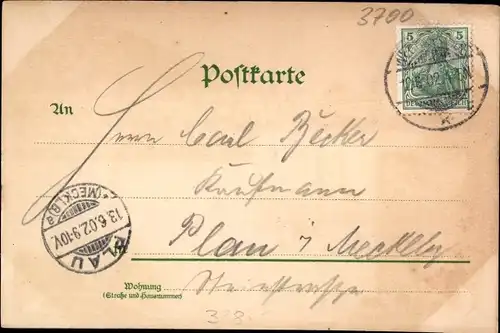 3700
5
02
Postkarte
An
Herrn Carl Becker
Kaufmann
Plau i Mecklbg
Steinstraße
PLAU
13.6.02.9-10V.
*(MECKLB)a
Wohnung
(Straße und Hausnummer)